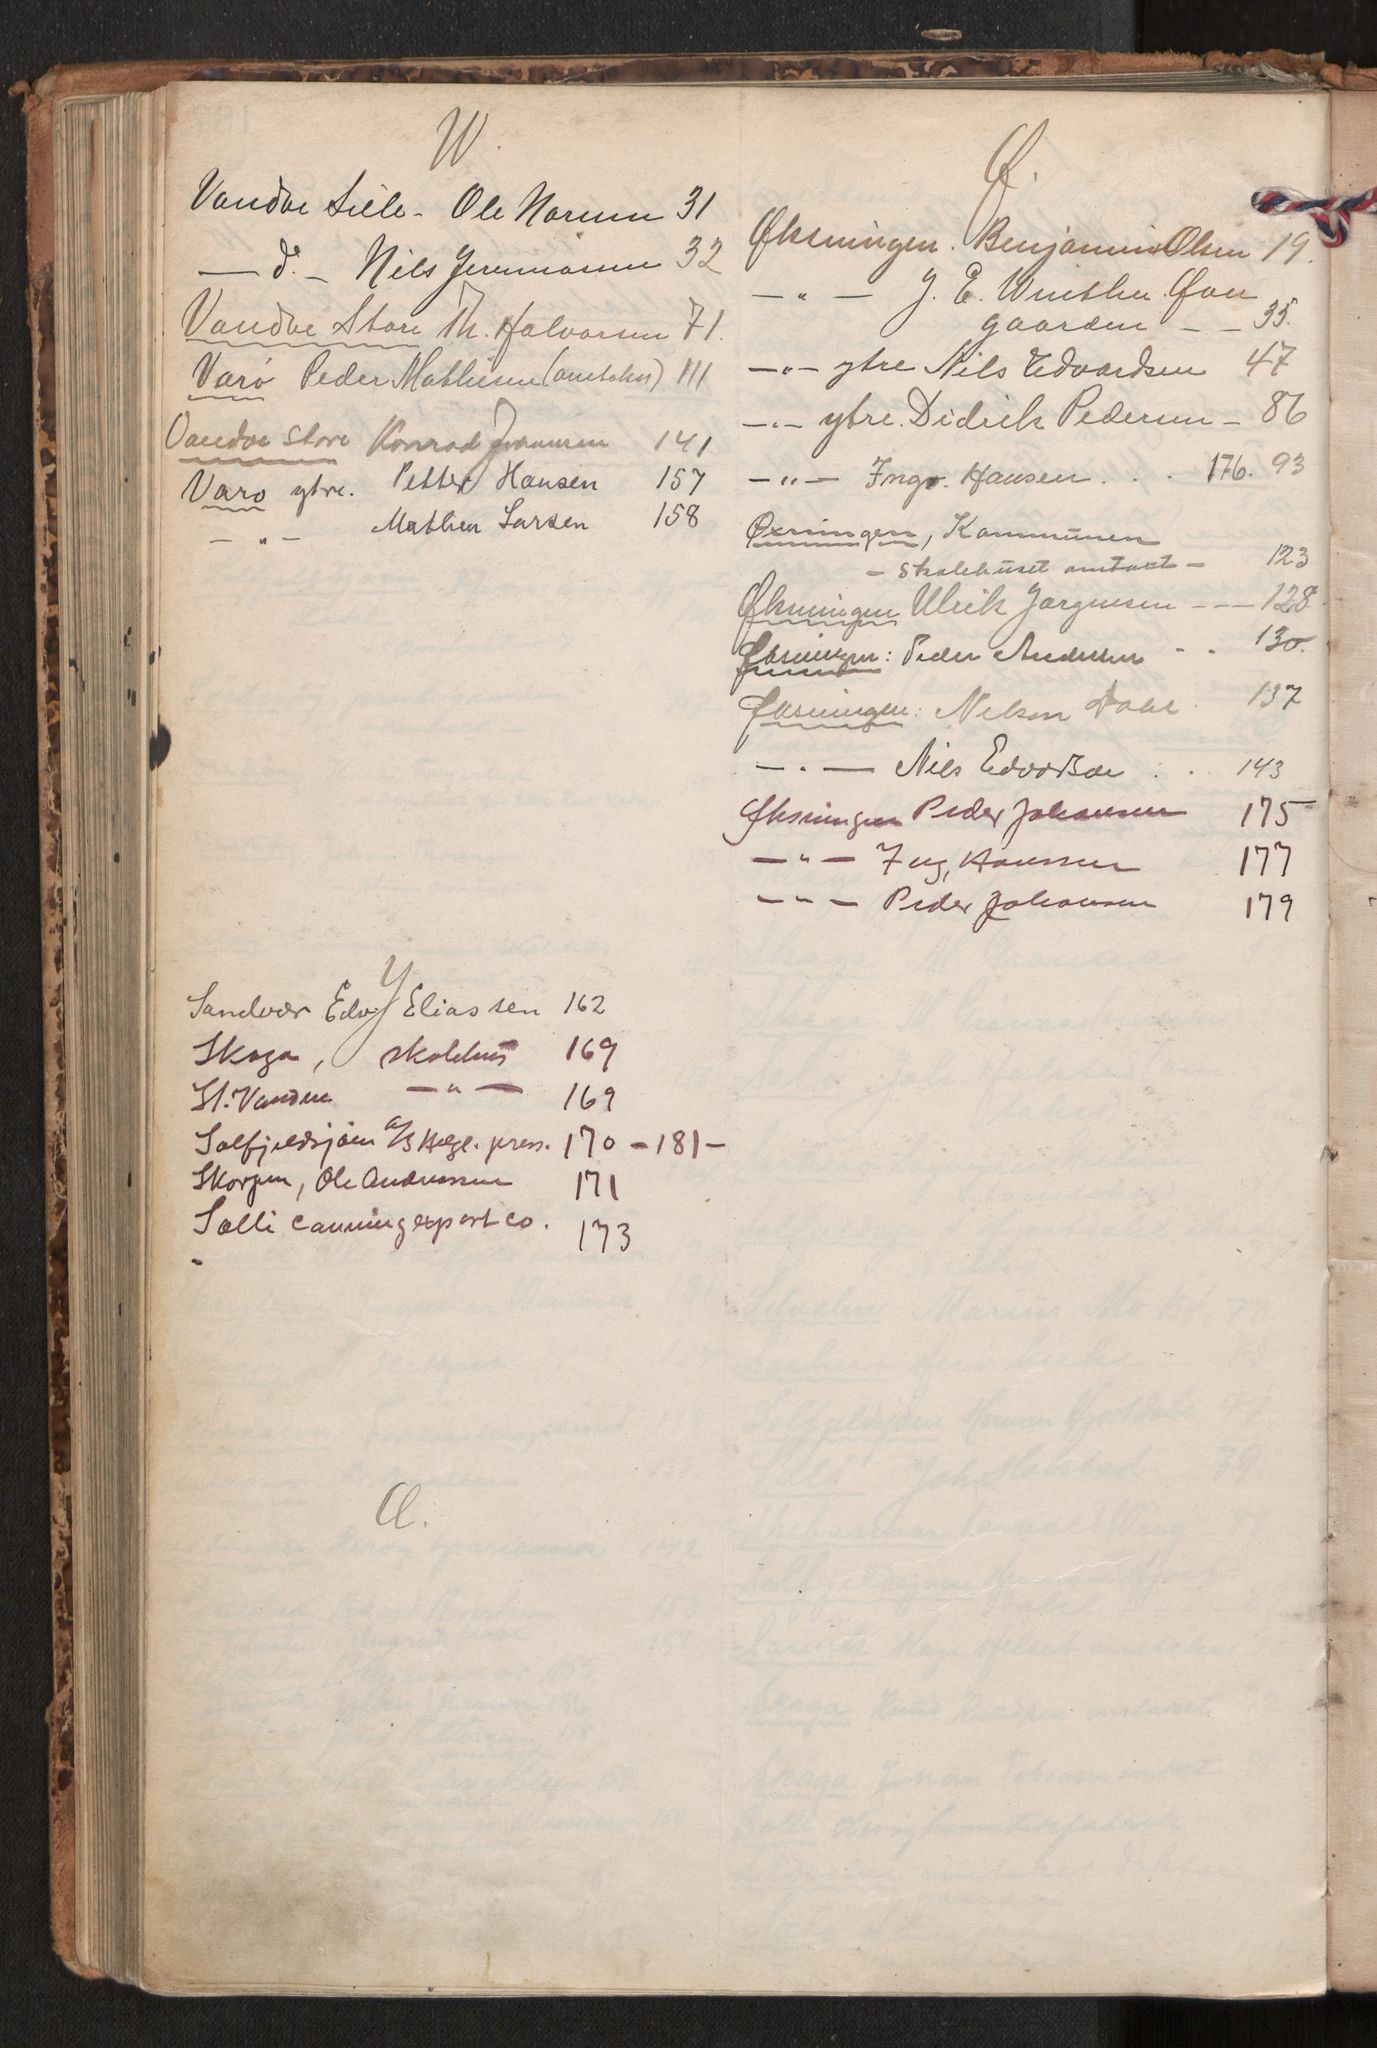 W.
Vandve Lille - Ole Norum 31
— d. — Nils Jeremiasen 32
Vandve Store Th. Halvorsen 71.
Varø Peder Mathisen (omtakst) 111
Vandve Store Konrad Johansen 141
Varø ytre. Petter Hansen 157
— " — Mathen Larsen 158
Y
Sandvær Edv. Eliassen 162
Skaga, skolehus 169
St. Vandve — " — 169
Solfjeldsjøen a/s Helgl. press. 170 - 181 -
Skorpen, Ole Andreassen 171
Solli Canning export co. 173
Æ.
Ø.
Øksningen. Benjamin Olsen 19.
— " — J. E. Winther Øen
gaarden - - 35.
— " — ytre Nils Edvardsen 47
— " — ytre. Didrik Pedersen - 86
— " — Ingv. Hansen . . . 176. 93
Øxningen, Kommunen
- Skolehuset omtaxt - 123
Øksningen Ulrik Jørgensen - - - 128
Øksningen: Peder Andersen - - 130.
Øksningen: Nelson Dahl . 137
— " — Nils Edvardsen . . 143
Øksningen Peder Johansen 175
— " — Ing, Hanssen 177
— " — Peder Johansen 179